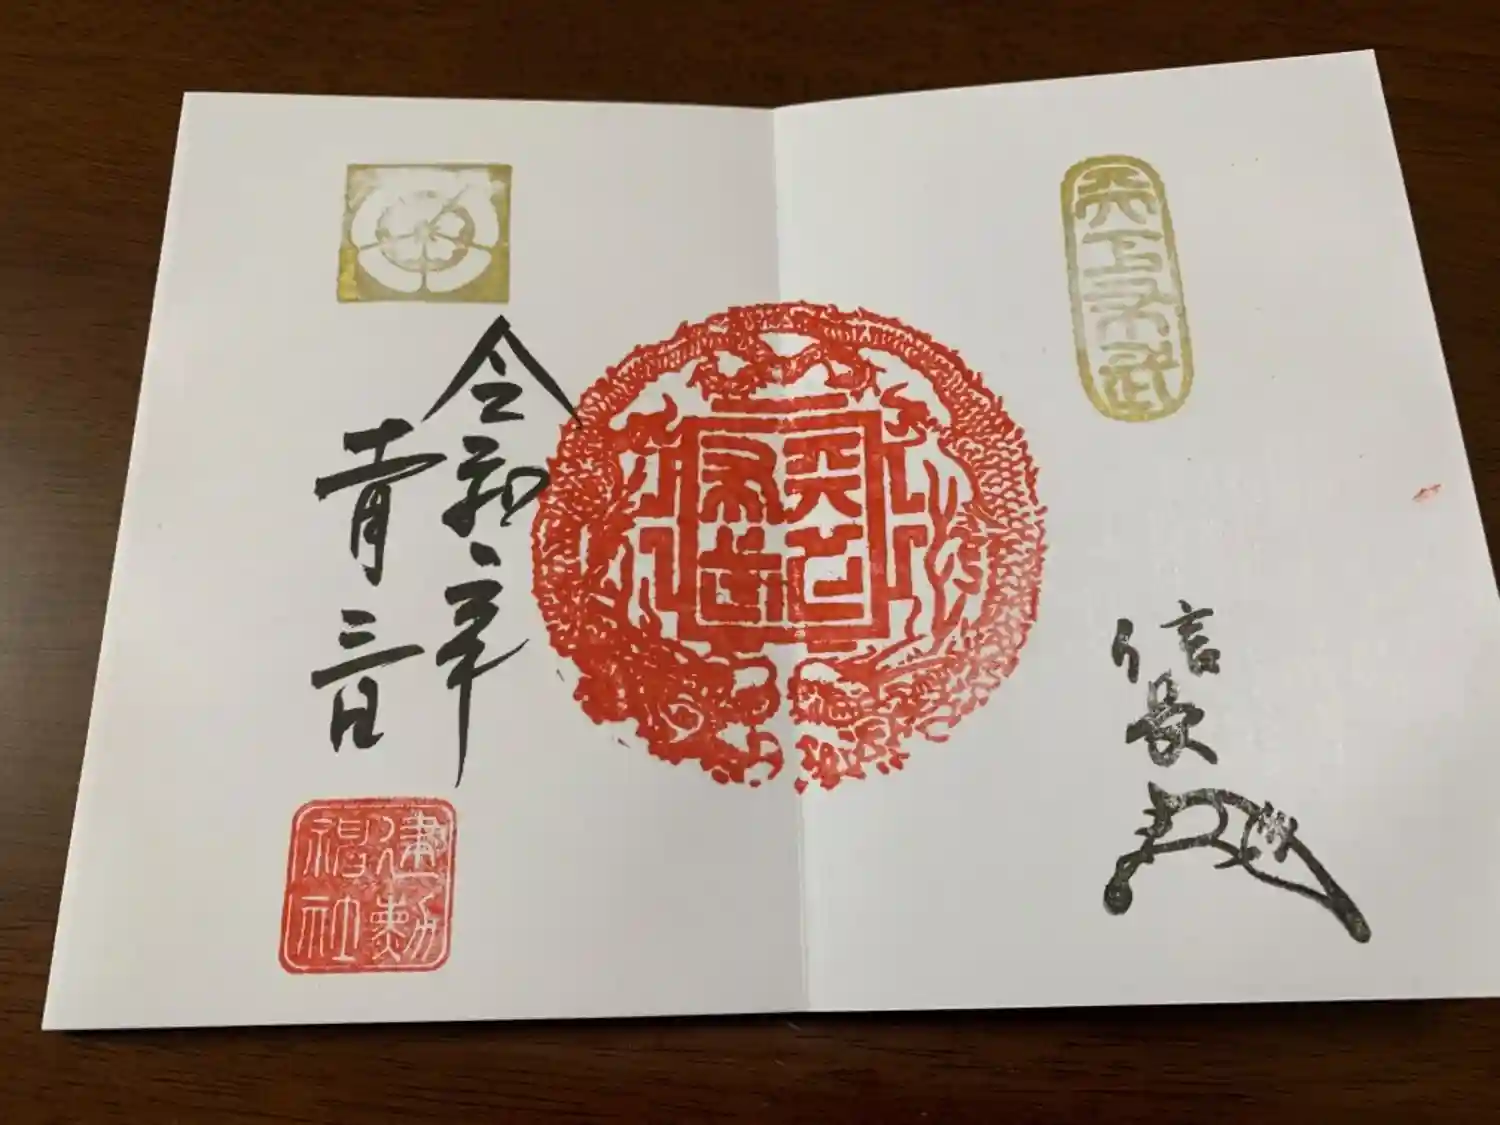 天下布武
信長
天下布武
令和二年
十一月
三日
建勲
神社